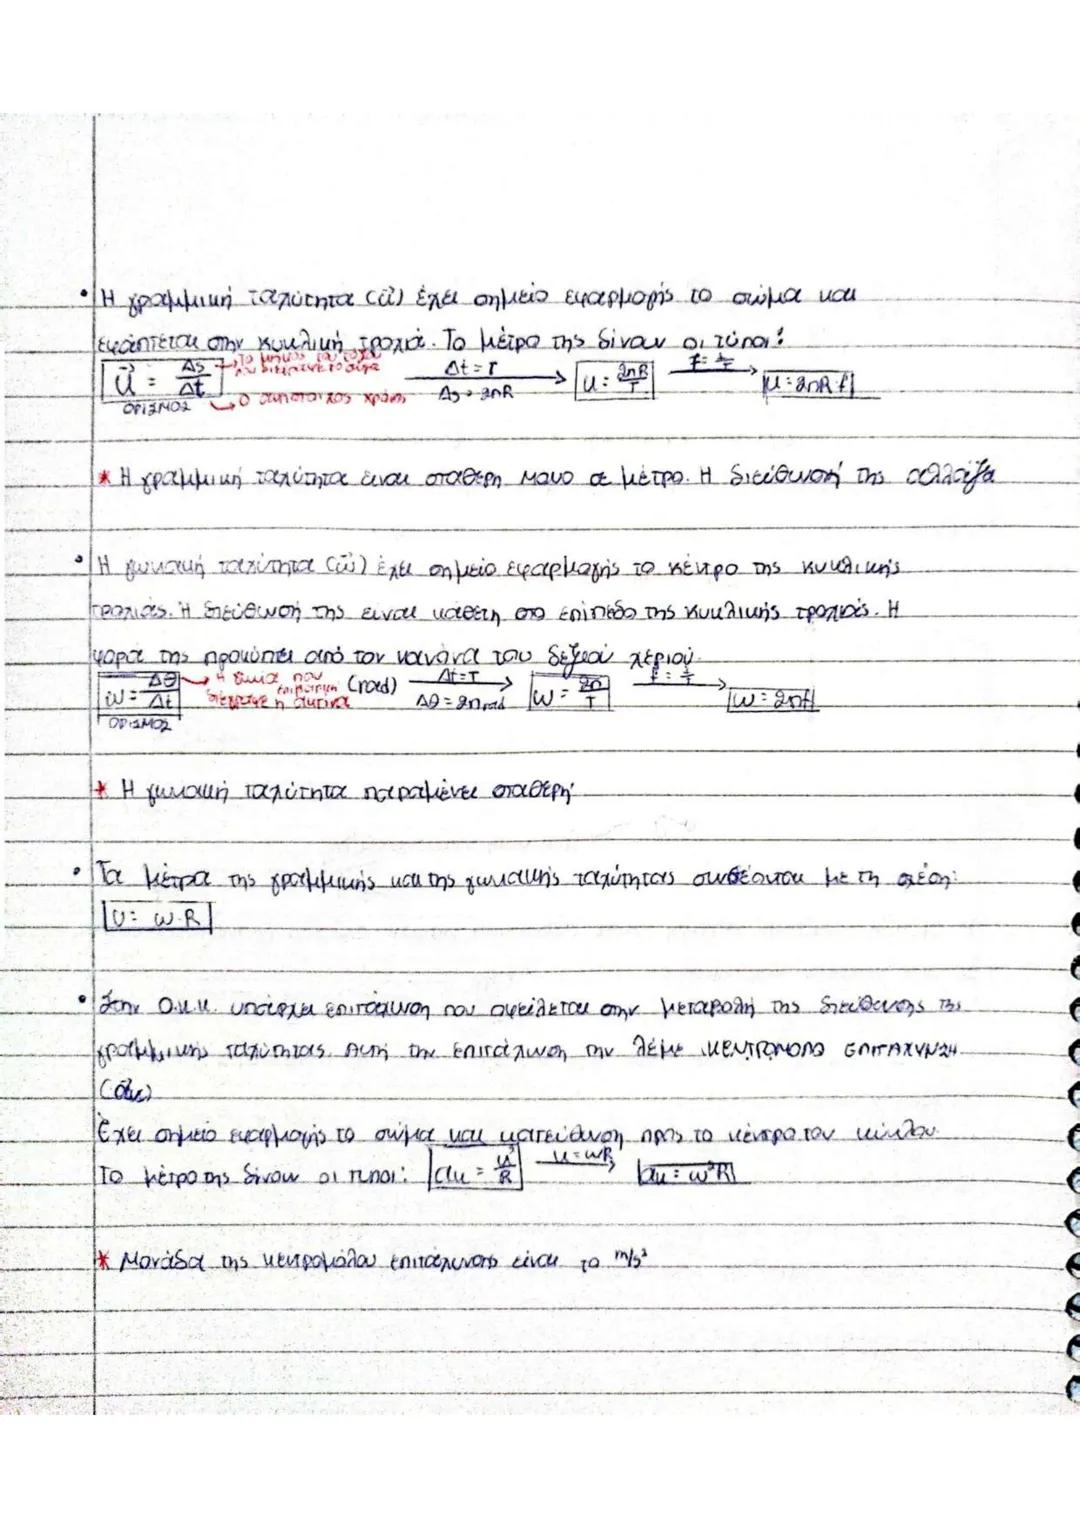 • Η γραμμική ταχύτητα (υ⃗) έχει σημείο εφαρμογής το σώμα και
εφάπτεται στην κυκλική τροχιά. Το μέτρο της δίνουν οι τύποι:
υ⃗ = Δs/Δt → Το μήκος του τόξου που διέγραψε το σώμα → Ο αντίστοιχος χρόνος Δt = T Δs = 2πR → υ = 2πR/T f = 1/T → υ = 2πR·f
ΟΡΙΣΜΟΣ
* Η γραμμική ταχύτητα είναι σταθερή μόνο σε μέτρο. Η διεύθυνσή της αλλάζει
• Η γωνιακή ταχύτητα (ω⃗) έχει σημείο εφαρμογής το κέντρο της κυκλικής
τροχιάς. Η διεύθυνσή της είναι κάθετη στο επίπεδο της κυκλικής τροχιάς. Η
φορά της προκύπτει από τον κανόνα του δεξιού χεριού.
ω = Δθ/Δt → Η γωνία που διέγραψε η ακτίνα (rad) Δt = T Δθ = 2π rad → ω = 2π/T f = 1/T → ω = 2πf
ΟΡΙΣΜΟΣ
* Η γωνιακή ταχύτητα παραμένει σταθερή
• Τα μέτρα της γραμμικής και της γωνιακής ταχύτητας συνδέονται με τη σχέση:
υ = ω·R
• Στην Ο.Κ.Κ. υπάρχει επιτάχυνση που οφείλεται στην μεταβολή της διεύθυνσης της
γραμμικής ταχύτητας. Αυτή την επιτάχυνση την λέμε ΚΕΝΤΡΟΜΟΛΟ ΕΠΙΤΑΧΥΝΣΗ
(α⃗κ)
Έχει σημείο εφαρμογής το σώμα και κατεύθυνση προς το κέντρο του κύκλου
Το μέτρο της δίνουν οι τύποι: ακ = υ²/R υ = ωR → ακ = ω²R
* Μονάδα της κεντρομόλου επιτάχυνσης είναι το m/s²